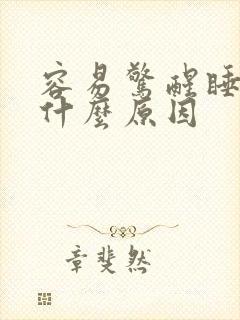 容易驚醒睡
什麼原因
章斐然